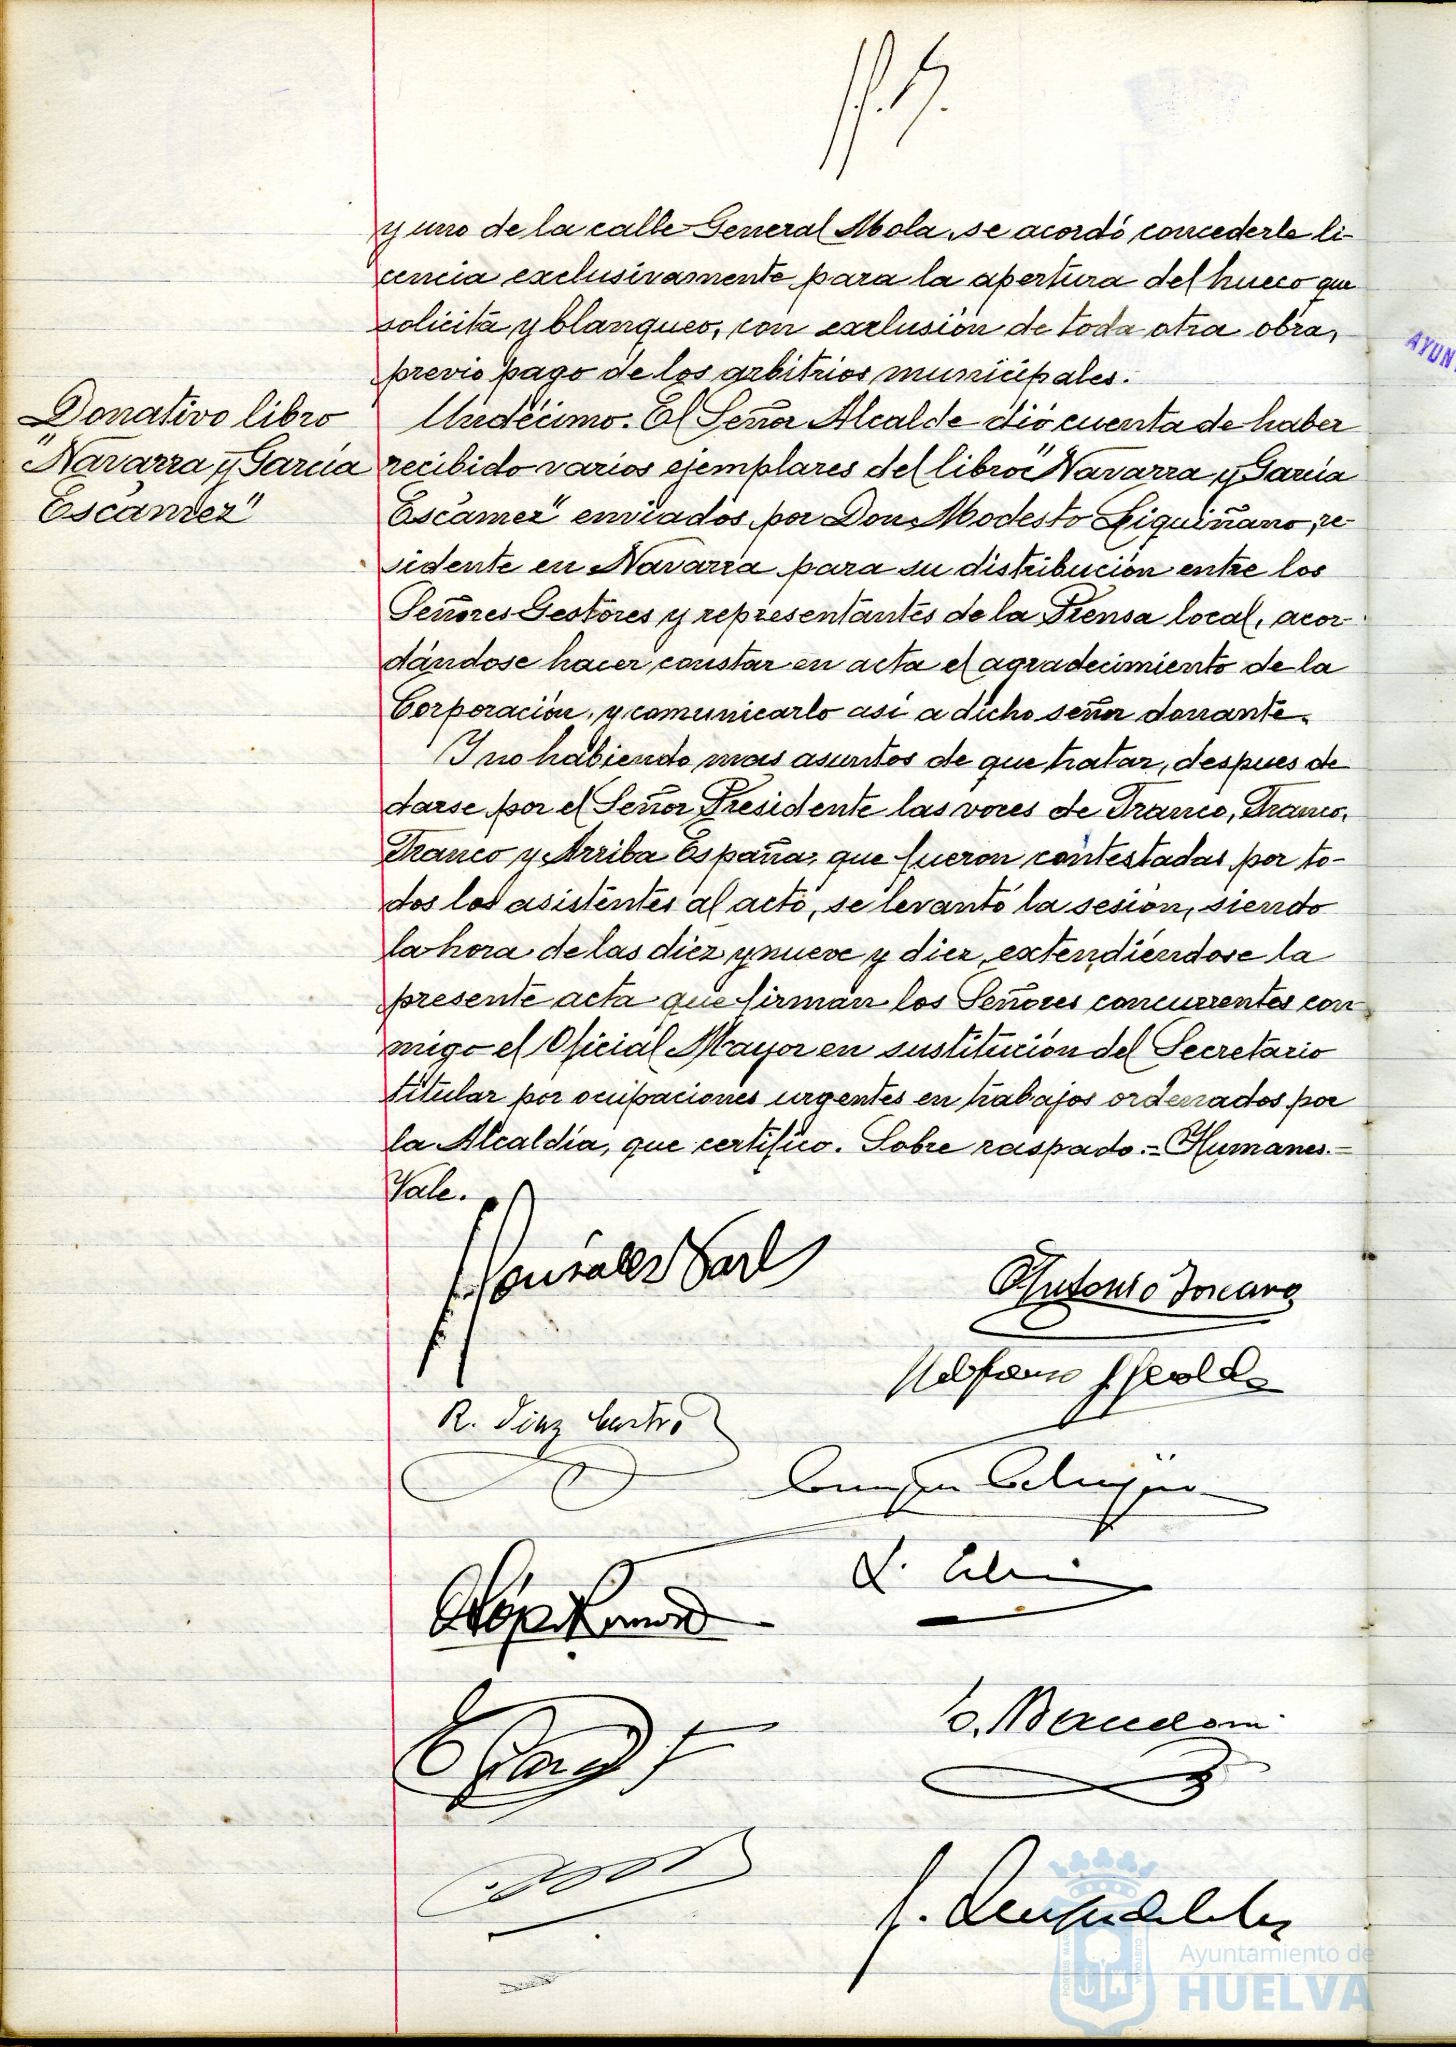 y uno de la calle General Mola, se acordó concederle li-
cencia exclusivamente para la apertura del hueco que
solicita y blanqueo, con exclusión de toda otra obra,
previo pago de los arbitrios municipales.
Donativo libro
"Navarra y García
Escámez"
Undécimo. El Señor Alcalde dió cuenta de haber
recibido varios ejemplares del libro "Navarra y García
Escámez" enviados por Don Modesto Liquiñano, re-
sidente en Navarra para su distribución entre los
Señores Gestores y representantes de la Prensa local, acor-
dándose hacer constar en acta el agradecimiento de la
Corporación, y comunicarlo así a dicho señor donante.
Y no habiendo mas asuntos de que tratar, despues de
darse por el Señor Presidente las voces de Franco, Franco,
Franco y Arriba España, que fueron contestadas por to-
dos los asistentes al acto, se levantó la sesión, siendo
la hora de las diez y nueve y diez, extendiéndose la
presente acta que firman los Señores concurrentes con-
migo el Oficial Mayor en sustitución del Secretario
titular por ocupaciones urgentes en trabajos ordenados por
la Alcaldía, que certifico. Sobre raspado.=Humanes.=
Vale.
Antonio Toscano
R. Diaz Castro
AYUN
Ayuntamiento de
HUELVA